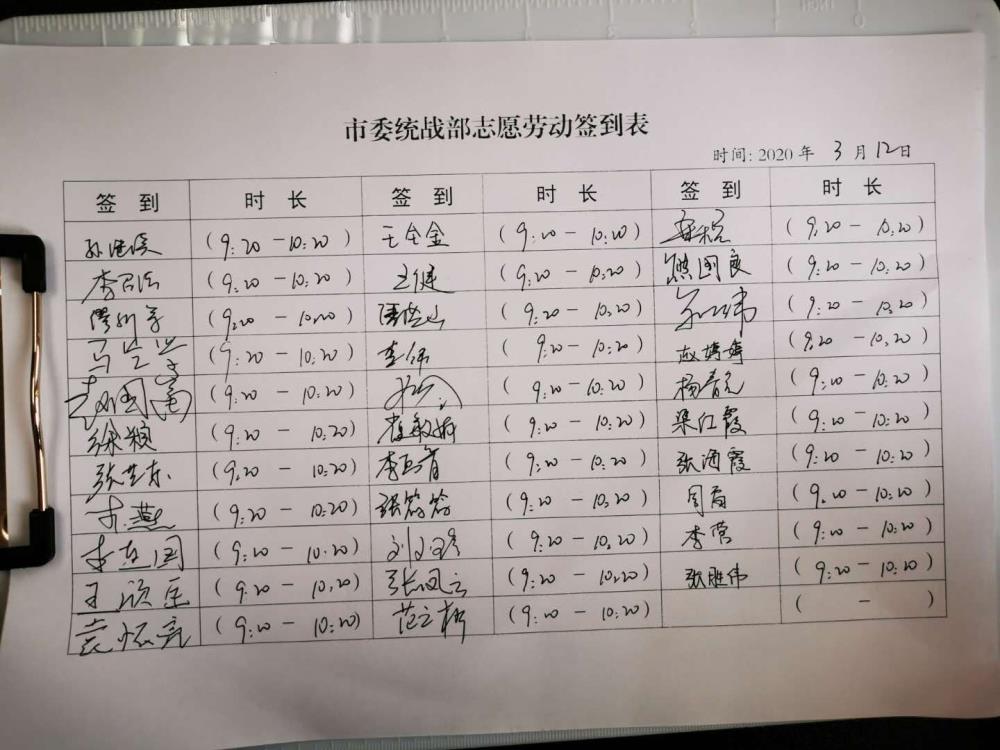 市委统战部志愿劳动签到表
时间: 2020 年 3 月 12 日
签 到 时 长 签 到 时 长 签 到 时 长
(9:20 - 10:20) 王全金 (9:20 - 10:20) (9:20 - 10:20)
(9:20 - 10:20) 王健 (9:20 - 10:20) 熊国良 (9:20 - 10:20)
(9:20 - 10:20) (9:20 - 10:20) (9:20 - 10:20)
(9:20 - 10:20) 李伟 (9:20 - 10:20) 赵婷婷 (9:20 - 10:20)
(9:20 - 10:20) (9:20 - 10:20) 杨 (9:20 - 10:20)
徐颖 (9:20 - 10:20) 崔敏娟 (9:20 - 10:20) 梁红霞 (9:20 - 10:20)
张 (9:20 - 10:20) 李 (9:20 - 10:20) 张酒霞 (9:20 - 10:20)
李燕 (9:20 - 10:20) 张 (9:20 - 10:20) 周 (9:20 - 10:20)
李 国 (9:20 - 10:20) 刘 (9:20 - 10:20) 李莹 (9:20 - 10:20)
王 (9:20 - 10:20) 张凤云 (9:20 - 10:20) 张胜伟 (9:20 - 10:20)
袁怀亮 (9:20 - 10:20) 范立桥 (9:20 - 10:20) ( - )